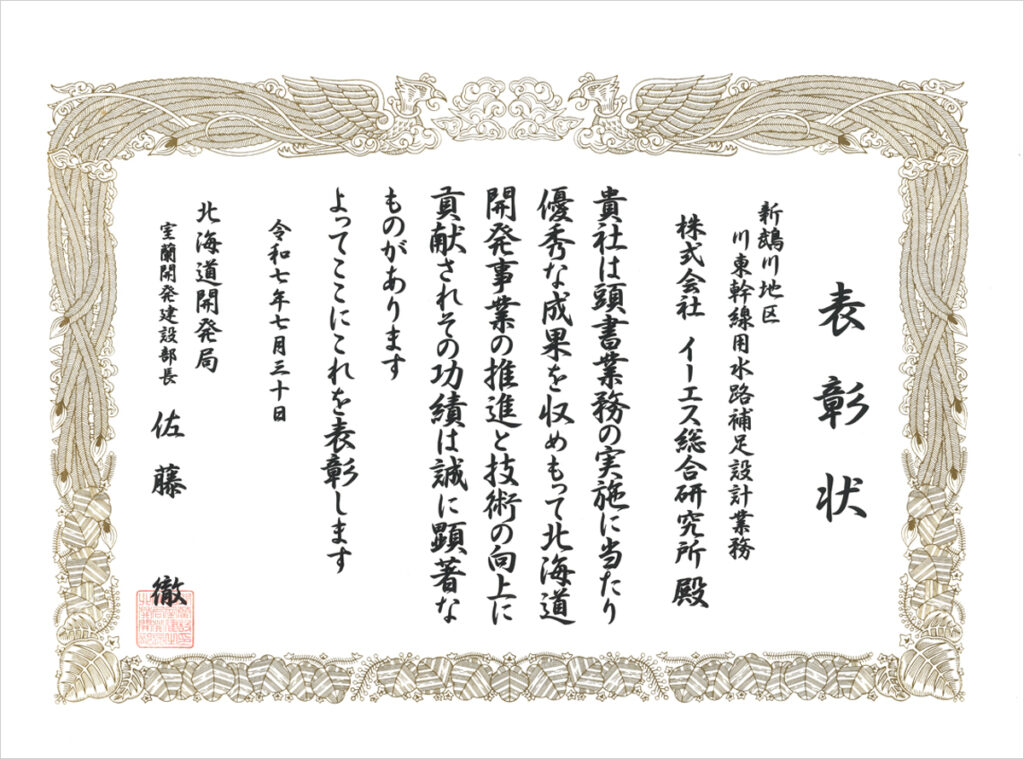 表彰状
新鵡川地区
川東幹線用水路補足設計業務
株式会社 イーエス総合研究所 殿
貴社は頭書業務の実施に当たり
優秀な成果を収めもって北海道
開発事業の推進と技術の向上に
貢献されその功績は誠に顕著な
ものがあります
よってここにこれを表彰します
令和七年七月三十日
北海道開発局
室蘭開発建設部長 佐藤 徹